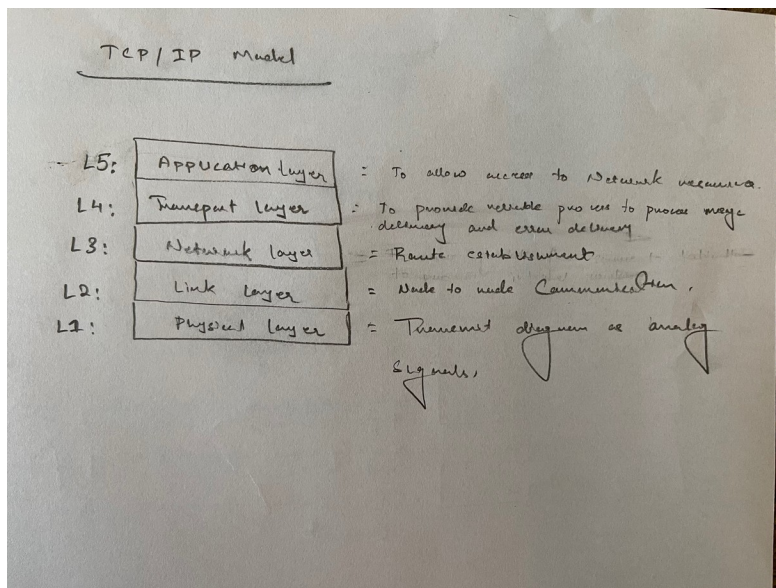 TCP/IP Model
L5: Application layer = To allow access to Network resources.
L4: Transport layer = To provide reliable process to process
delivery and error delivery
L3: Network layer = Route establishment
L2: Link layer = Node to node Communication.
L1: Physical layer = Transmit as analog
signals.